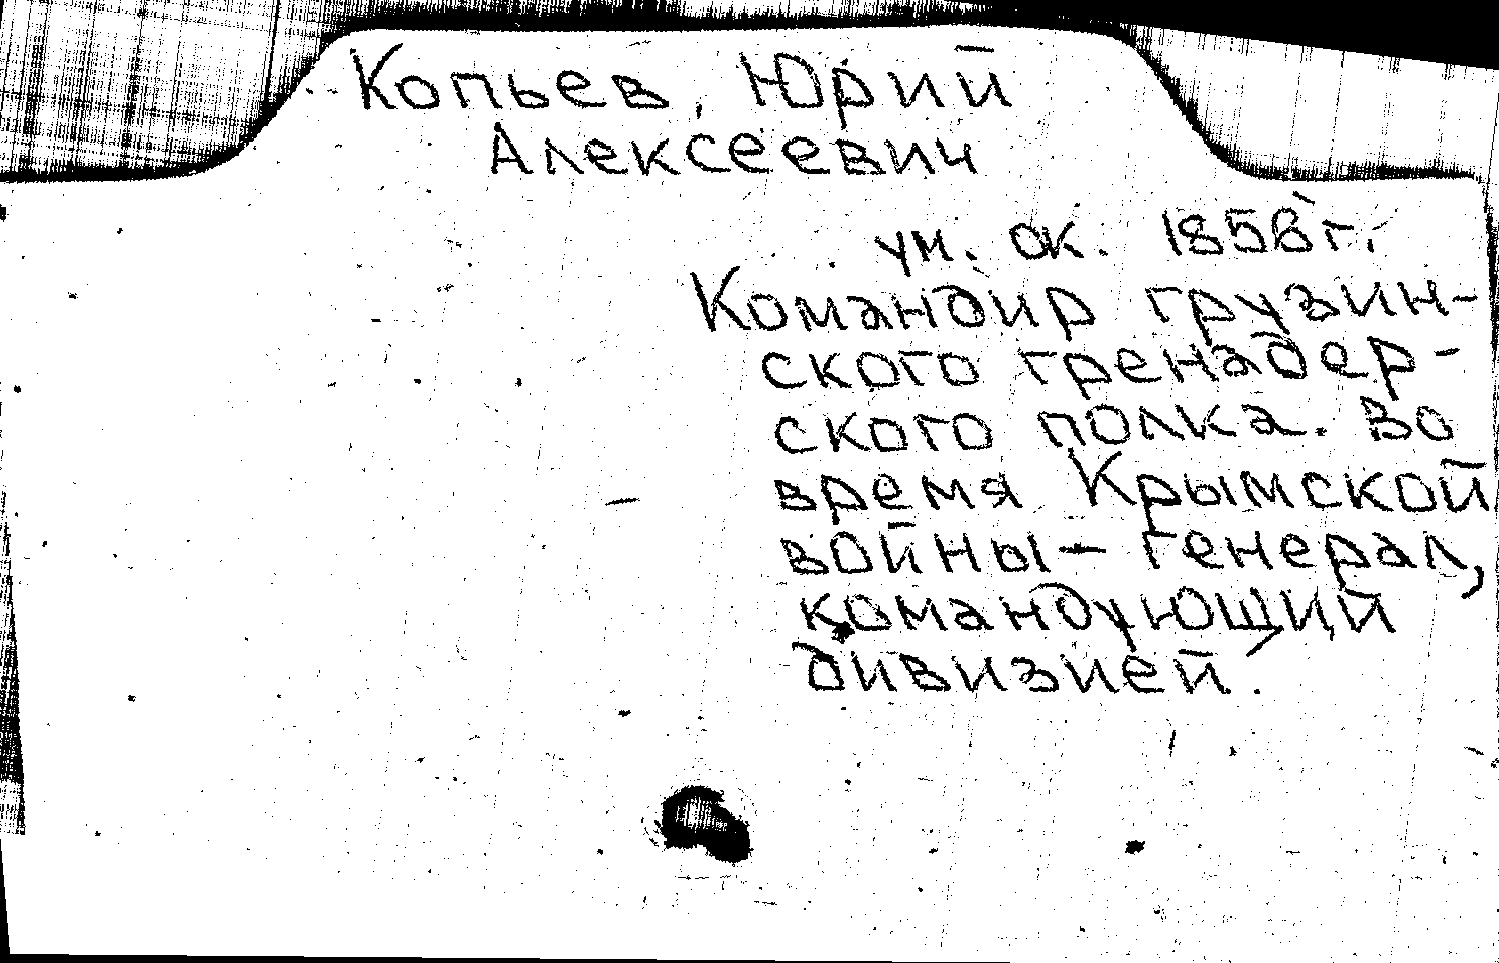 Копьев, Юрий
Алексеевич
ум. ок. 1856 г.
Командир грузин-
ского гренадер-
ского полка. Во
время Крымской
войны – генерал,
командующий
дивизией.